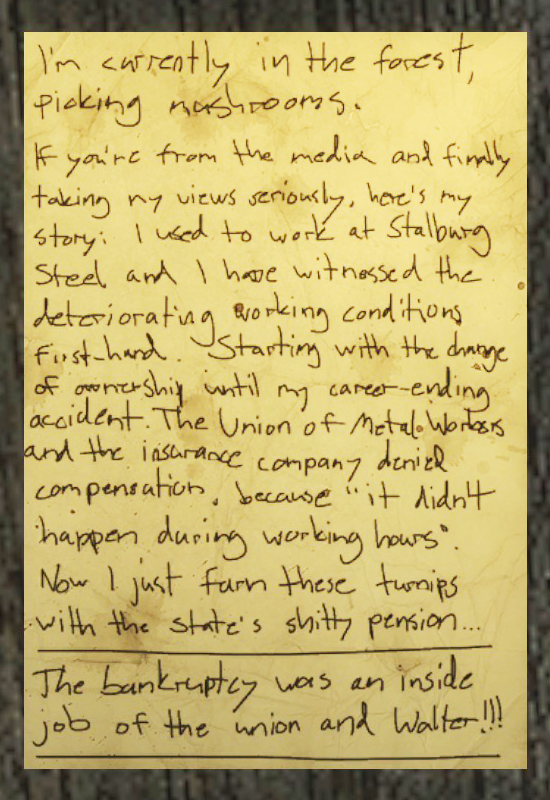 I'm currently in the forest,
picking mushrooms.
If you're from the media and finally
taking my views seriously, here's my
story: I used to work at Stalburg
Steel and I have witnessed the
deteriorating working conditions
first-hand. Starting with the change
of ownership until my career-ending
accident. The Union of Metal Workers
and the insurance company denied
compensation, because "it didn't
happen during working hours".
Now I just farm these turnips
with the state's shitty pension...
The bankruptcy was an inside
job of the union and Walter!!!